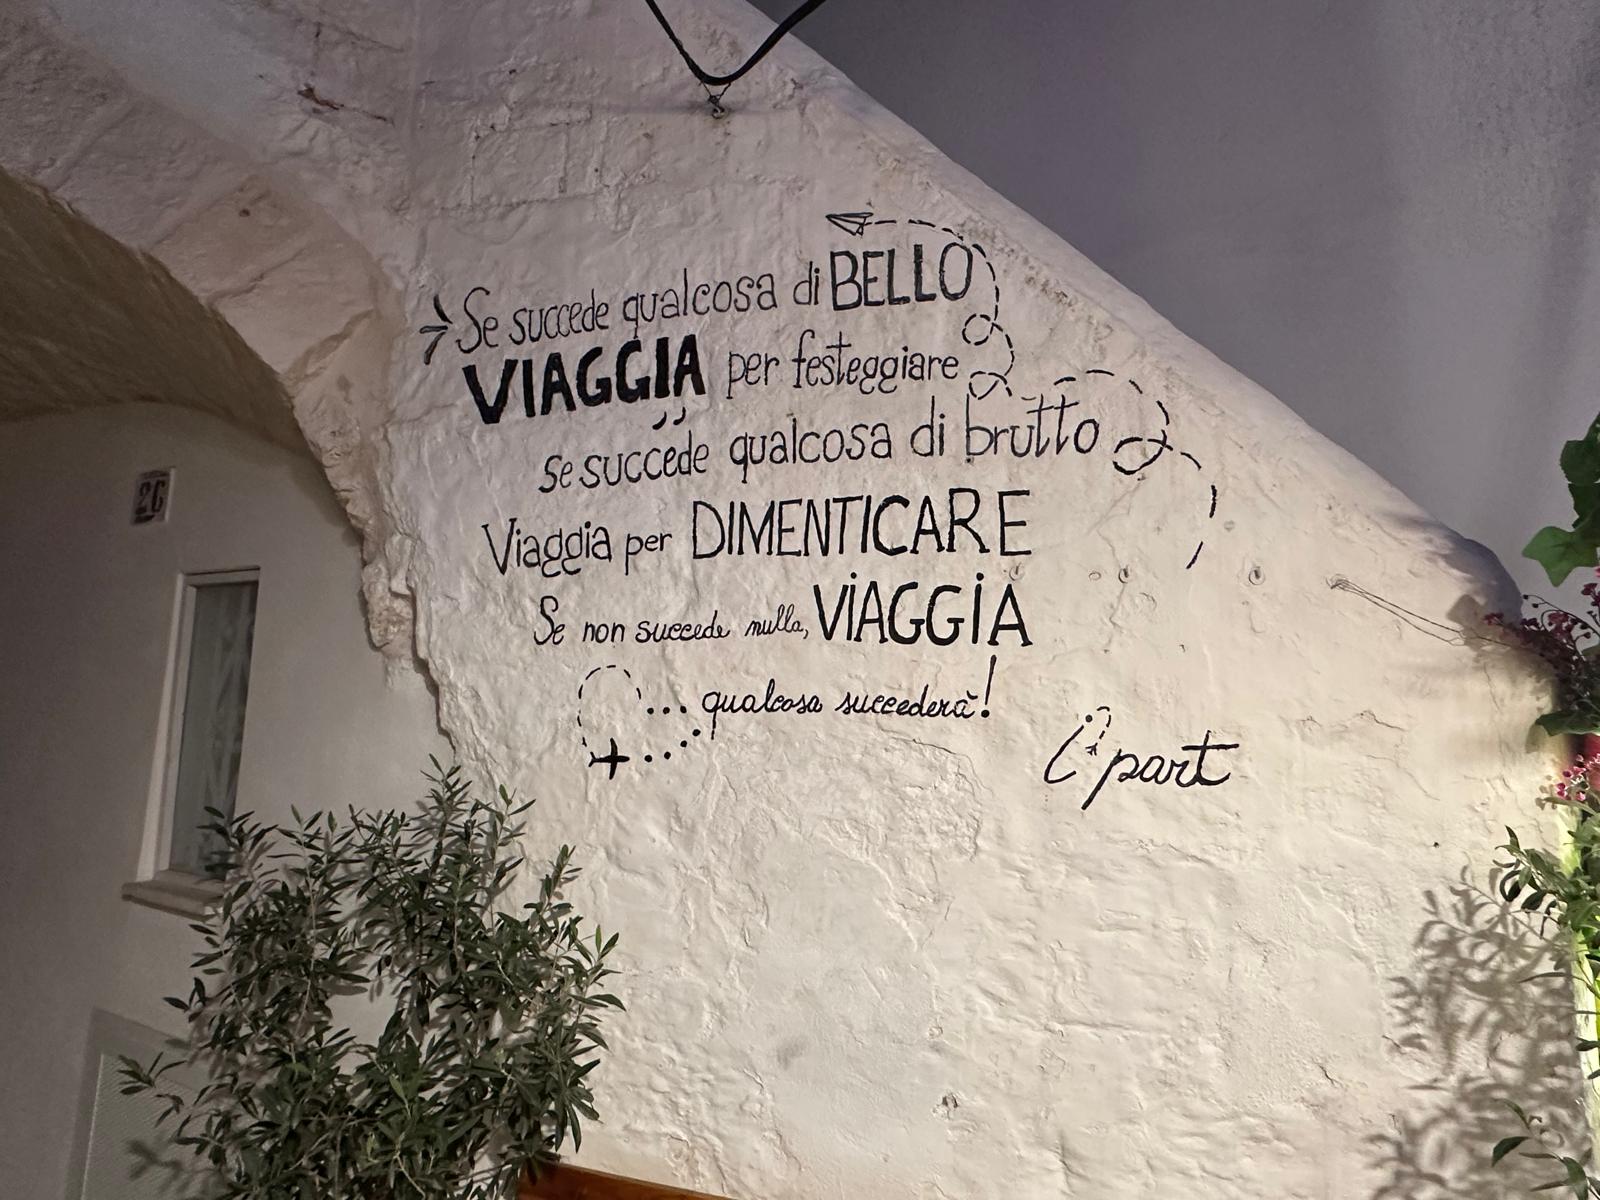 26
Se succede qualcosa di BELLO
VIAGGIA per festeggiare
se succede qualcosa di brutto
Viaggia per DIMENTICARE
Se non succede nulla, VIAGGIA
... qualcosa succederà!
i part